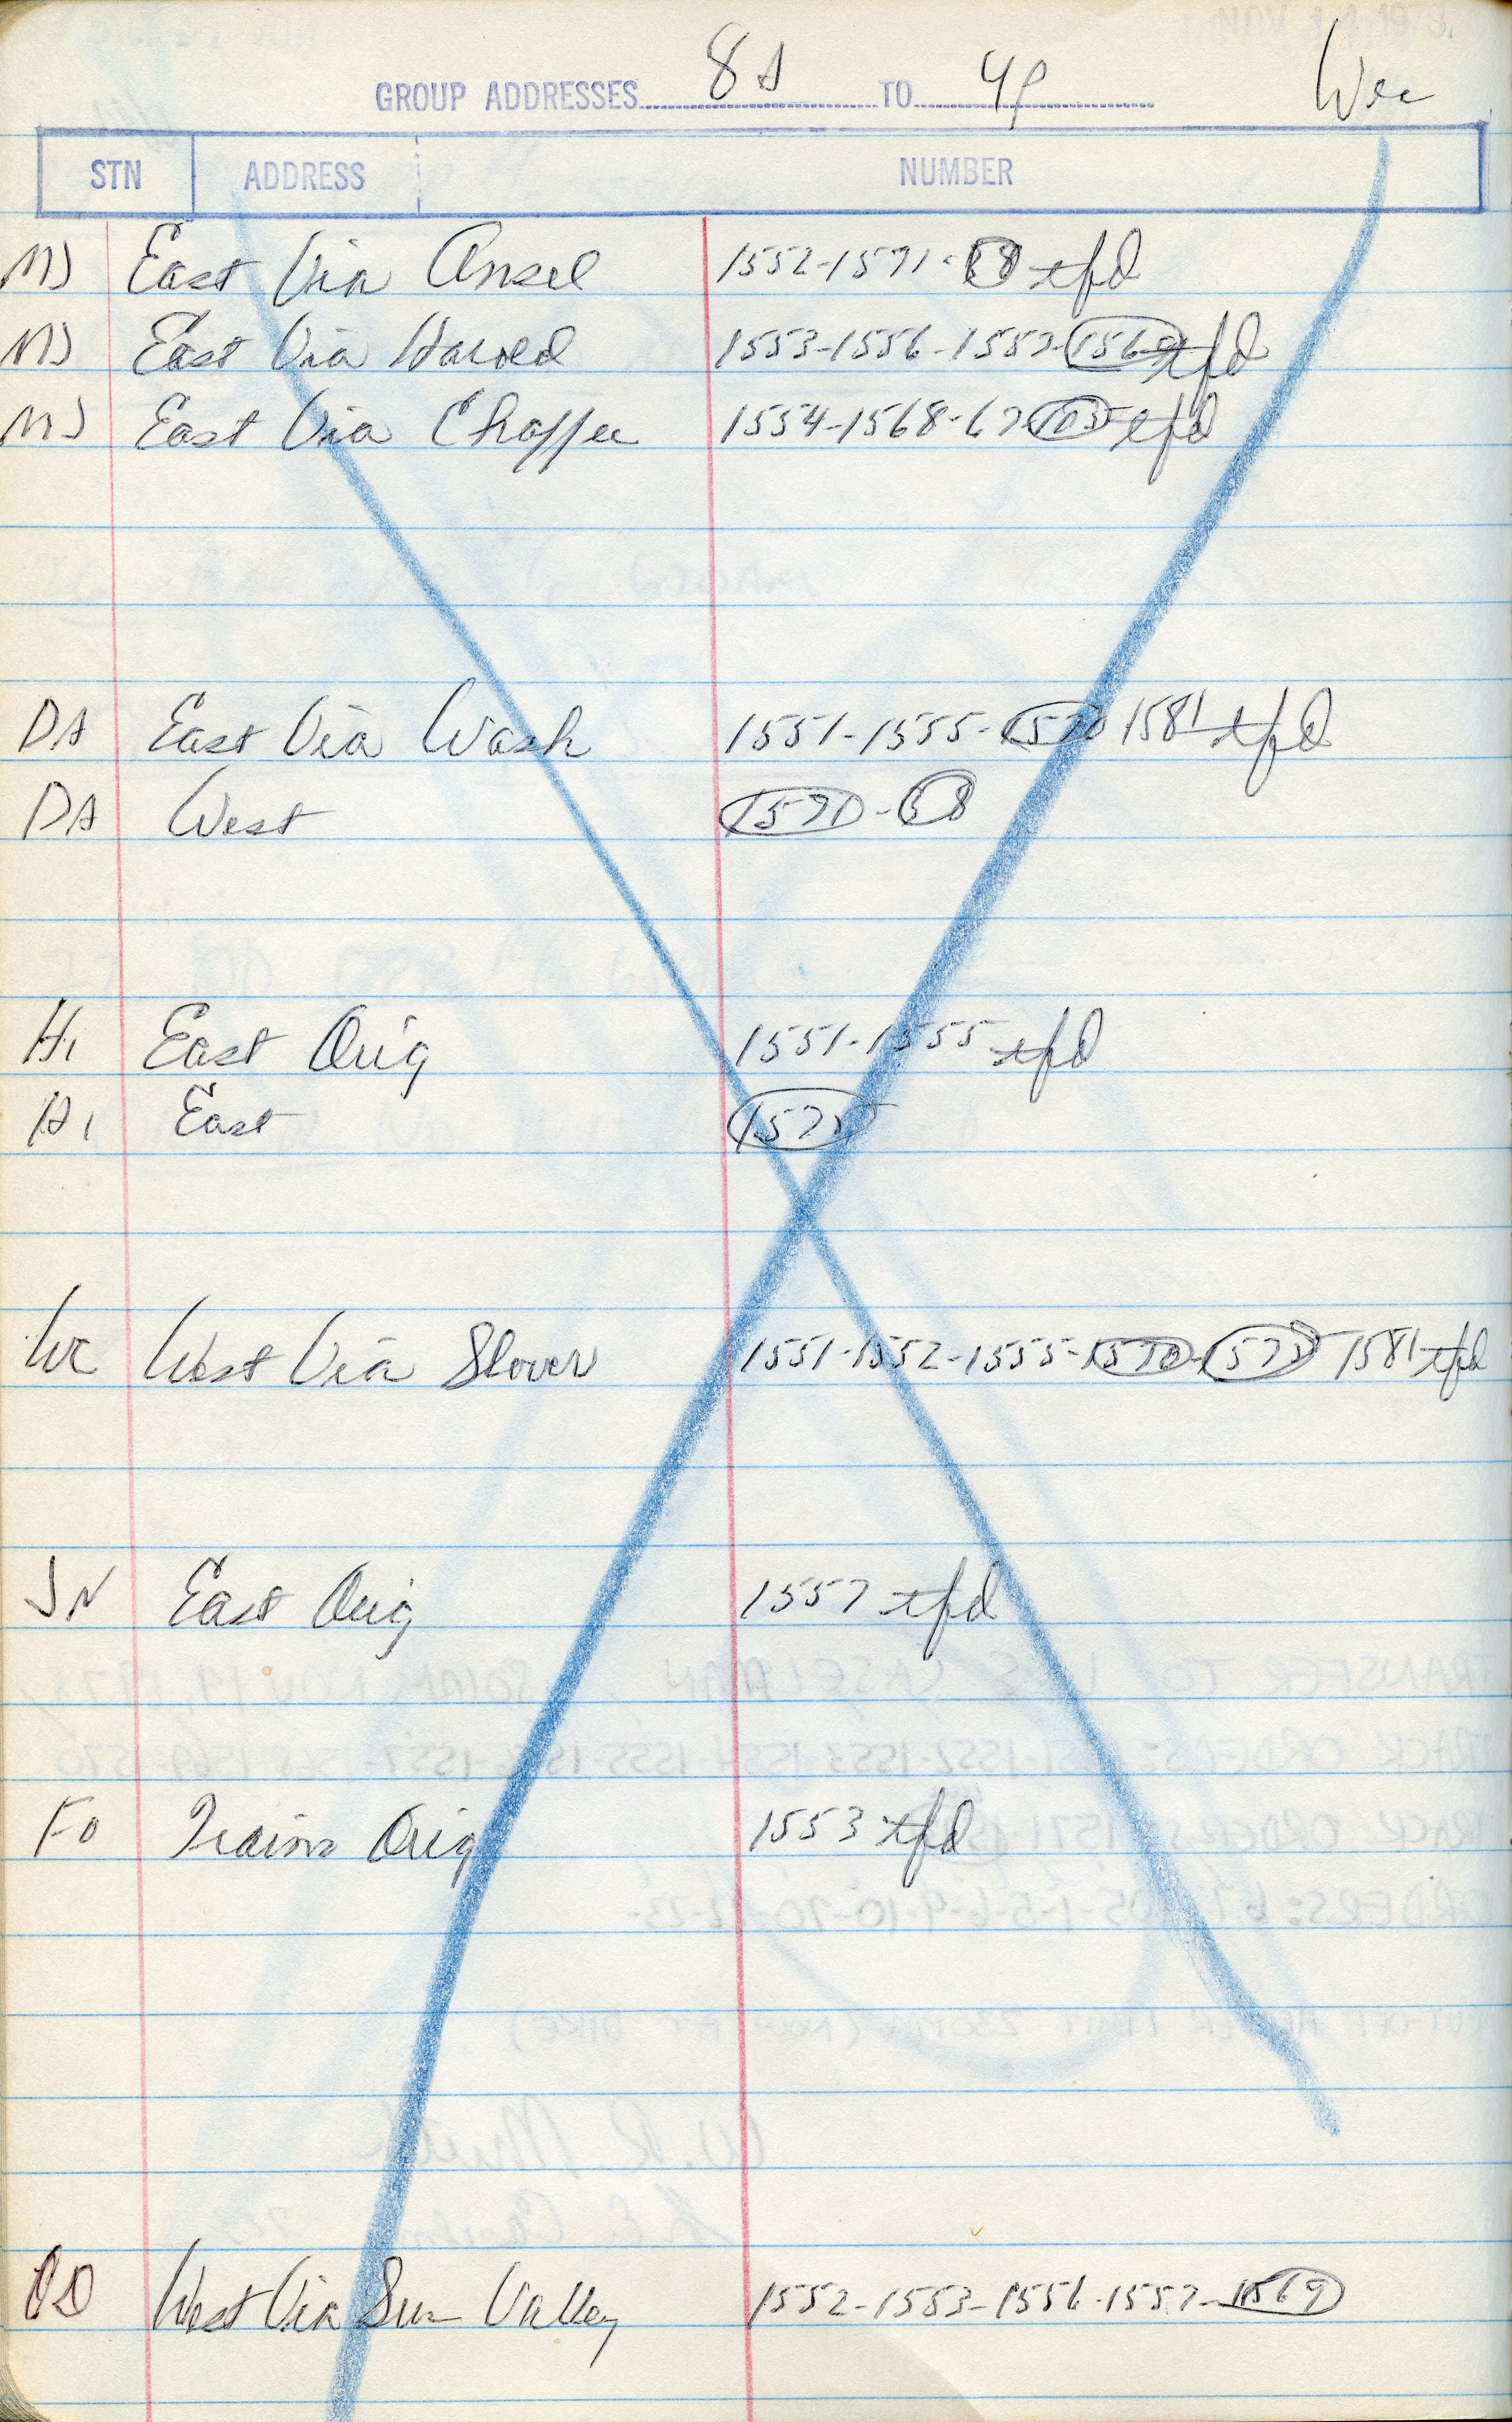 GROUP ADDRESSES 8A TO 4P
STN ADDRESS NUMBER
MJ East Via Ansel 1552-1571- tfd
MJ East Via Harold 1553-1556-1557-1569 tfd
MJ East Via Chaffee 1554-1568-67-105 tfd
DA East Via Wash 1551-1555-1570 1581 tfd
DA West
HI East Orig 1551-1555 tfd
HI East
WC West Via Slover 1551-1552-1555-1570- 1581 tfd
JN East Orig 1557 tfd
FO Trains Orig 1553 tfd
West Via Sun Valley 1552-1553-1556-1557-1569